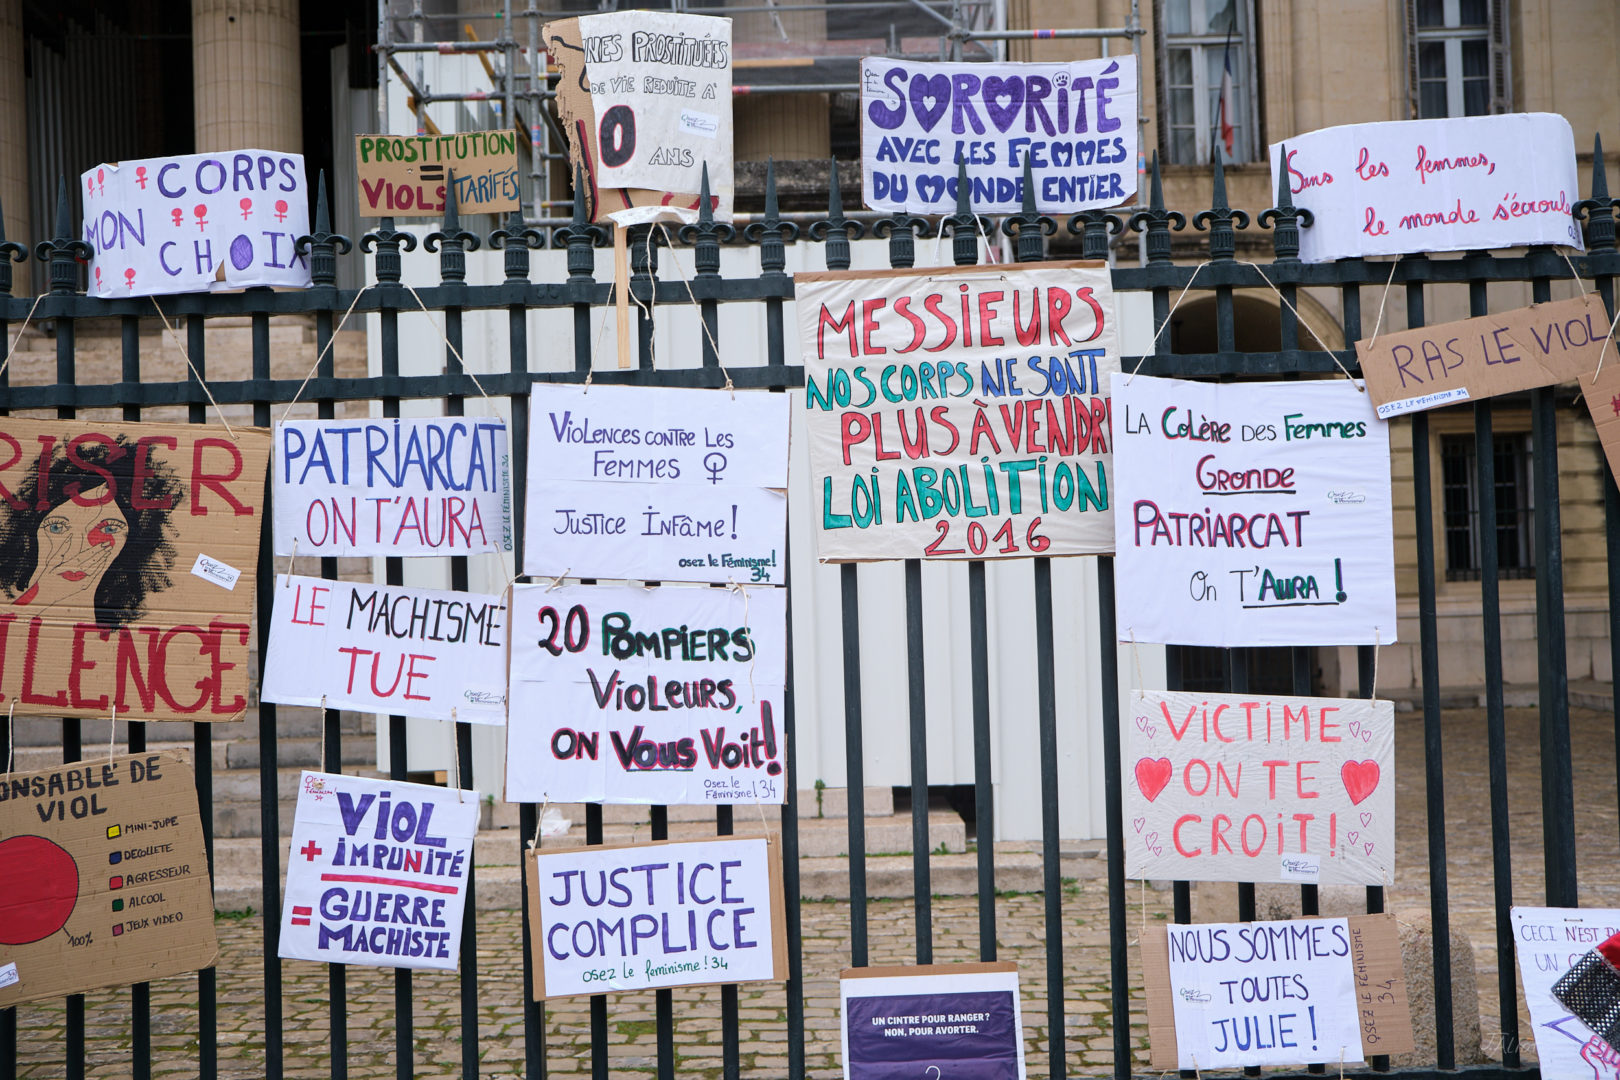 CORPS
MON
CHOIX
PROSTITUTION
=
VIOLS TARIFÉS
PROSTITUÉES
DE VIE REDUITE A
0
ANS
SORORITÉ
AVEC LES FEMMES
DU MONDE ENTIER
Sans les femmes,
le monde s'écroule
RISER
ILENCE
PATRIARCAT
ON T'AURA
OSEZ LE FÉMINISME 34
VIOLENCES CONTRE LES
FEMMES ♀
JUSTICE INFÂME!
osez le Féminisme!
34
MESSIEURS
NOS CORPS NE SONT
PLUS À VENDRE
LOI ABOLITION
2016
LA COLÈRE DES FEMMES
GRONDE
PATRIARCAT
On T'AURA !
RAS LE VIOL
OSEZ LE FEMINISME 34
LE MACHISME
TUE
20 POMPIERS
VIOLEURS,
ON VOUS Voit!
Osez le
Féminisme! 34
VICTIME
ON TE
CROIT!
ONSABLE DE
VIOL
MINI-JUPE
DECOLLETE
AGRESSEUR
ALCOOL
JEUX VIDEO
100%
VIOL
+ IMPUNITÉ
= GUERRE
MACHISTE
JUSTICE
COMPLICE
osez le feminisme! 34
UN CINTRE POUR RANGER ?
NON, POUR AVORTER.
NOUS SOMMES
TOUTES
JULIE !
OSEZ LE FEMINISME
34
CECI N'EST
UN